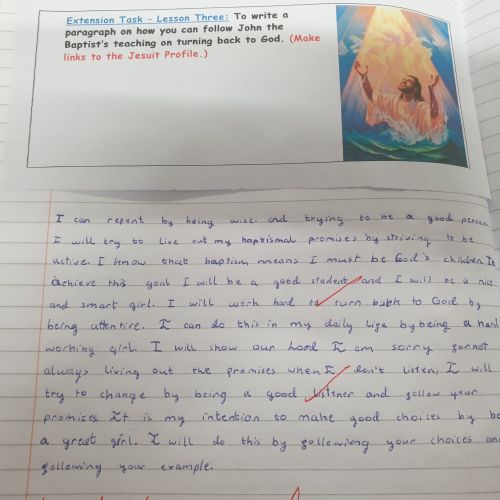 Extension Task - Lesson Three: To write a
paragraph on how you can follow John the
Baptist's teaching on turning back to God. (Make
links to the Jesuit Profile.)
I can repent by being wise. and trying to be a good person.
I will try to live out my baptismal promises by striving to be
active. I know that baptism means I must be God's children To
achieve this goal I will be a good student and I will be a nice
and smart girl. I will work hard to turn back to God by
being attentive. I can do this in my daily life by being a hard
working girl. I will show our Lord I am sorry for not
always living out the promises when I don't listen, I will
try to change by being a good listener and follow your
promises. It is my intention to make good choices by be
a great girl. I will do this by following your choices and
following your example.